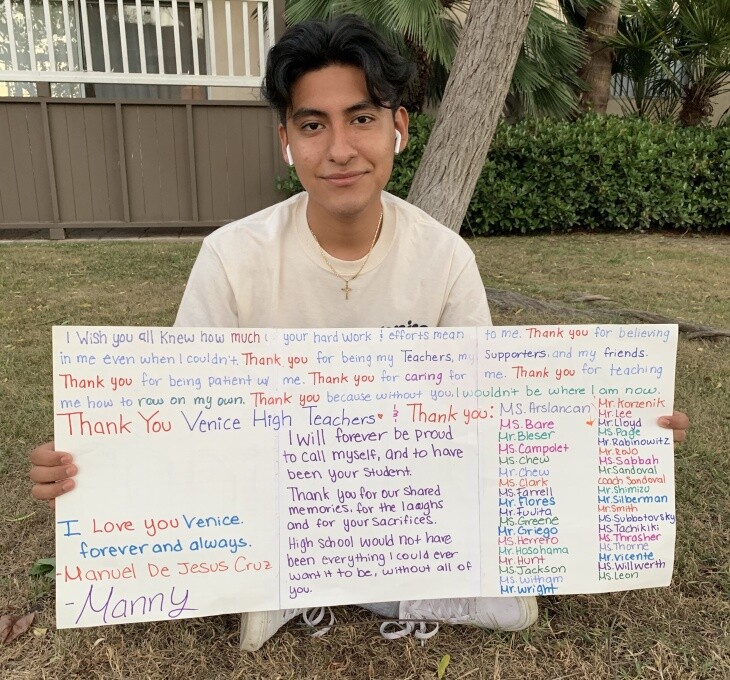 I Wish you all knew how much your hard work & efforts mean to me. Thank you for believing
in me even when I couldn't. Thank you for being my Teachers, my supporters, and my friends.
Thank you for being patient w/ me. Thank you for caring for me. Thank you for teaching
me how to row on my own. Thank you because without you, I wouldn't be where I am now.
Thank You Venice High Teachers & Thank you:
I Love you Venice.
forever and always.
-Manuel De Jesus Cruz
-Manny
I will forever be proud
to call myself, and to have
been your student.
Thank you for our shared
memories, for the laughs
and for your sacrifices.
High school would not have
been everything I could ever
want it to be, without all of
you.
MS. Arslancan
MS. Bare
Mr. Bleser
MS. Campolet
MS. Chew
Mr. Chew
MS. Clark
MS. Farrell
Mr. Flores
Mr. Fujita
MS. Greene
Mr. Griego
MS. Herrero
Mr. Hosohama
Mr. Hunt
MS. Jackson
MS. Witham
Mr. Wright
Mr. Korzenik
Mr. Lee
Mr. Lloyd
MS. Page
Mr. Rabinowitz
Mr. Rojo
MS. Sabbah
Mr. Sandoval
Coach Sandoval
Mr. Shimizu
Mr. Silberman
Mr. Smith
MS. Subbotovsky
MS. Tachikiki
MS. Thrasher
MS. Thorne
Mr. Vicente
MS. Willwerth
MS. Leon